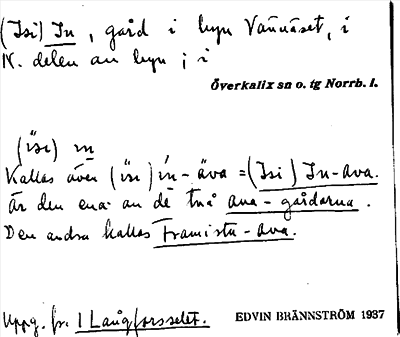 (Isi) In, gård i byn Vännäset, i
N. delen av byn ; i
Överkalix sn o. tg Norrb. l.
(ísi) ın
Kallas även (ísi) ín-äva = (Isi) In-ava.
Är den ena av de två ava-gårdarna.
Den andra kallas Framistu-ava.
Uppg. fr. 1 Långforsselet.
EDVIN BRÄNNSTRÖM 1937